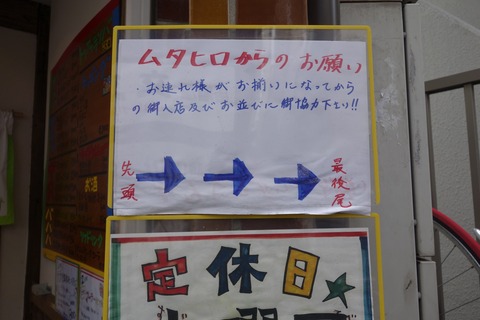 ムタヒロからのお願い
・お連れ様がお揃いになってから
の御入店及びお並びに御協力下さい!!
先頭
最後尾
定休日